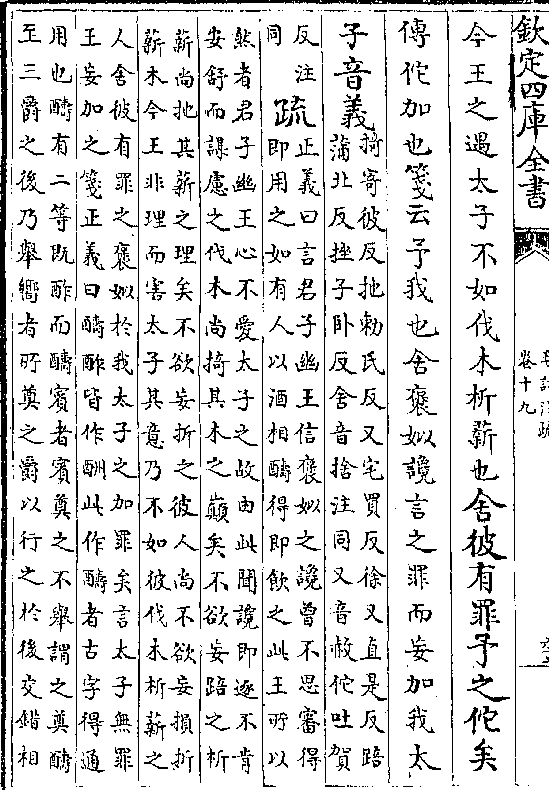 欽定四庫全書
卷十九
今王之遇太子不如伐木析薪也舍彼有罪予之佗矣
傳佗加也箋云予我也舍褒姒讒言之罪而妄加我太
子音義
掎寄彼反扡勅氏反又宅買反徐又直是反踣
蒲北反挫子卧反舍音捨注同又音赦佗吐賀
反注
同
疏
正義曰言君子幽王信褒姒之讒曾不思審得
即用之如有人以酒相酬得即飲之此王所以
然者君子幽王心不愛太子之故由此聞讒即逐不肯
安舒而謀慮之伐木尚掎其木之巔矣不欲妄踣之析
薪尚扡其薪之理矣不欲妄折之彼人尚不欲妄損折
薪木今王非理而害太子其意乃不如彼伐木析薪之
人舍彼有罪之褒姒於我太子之加罪矣言太子無罪
王妄加之箋正義曰醻酢皆作酬此作醻者古字得通
用也醻有二等既酢而醻賓者賓奠之不舉謂之奠醻
至三爵之後乃舉嚮者所奠之爵以行之於後交錯相